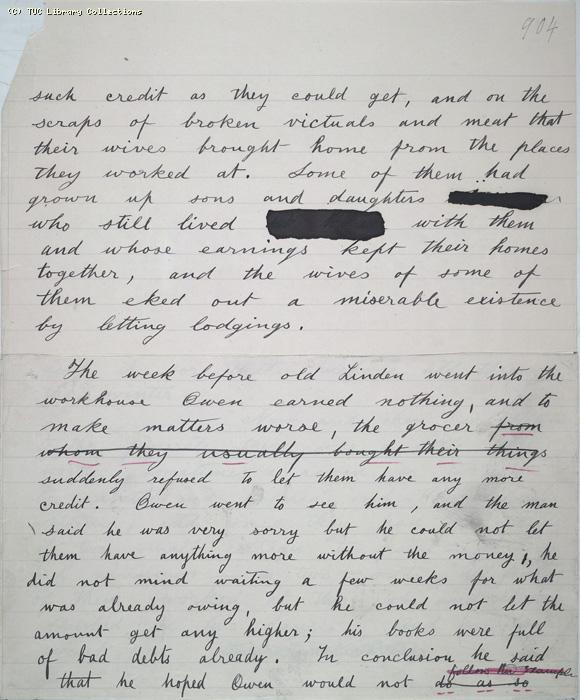 (C) TUC Library Collections
904
such credit as they could get, and on the
scraps of broken victuals and meat that
their wives brought home from the places
they worked at. Some of them had
grown up sons and daughters
who still lived with them
and whose earnings kept their homes
together, and the wives of some of
them eked out a miserable existence
by letting lodgings.
The week before old Linden went into the
workhouse Owen earned nothing, and to
make matters worse, the grocer from
whom they usually bought their things
suddenly refused to let them have any more
credit. Owen went to see him, and the man
said he was very sorry but he could not let
them have anything more without the money, he
did not mind waiting a few weeks for what
was already owing, but he could not let the
amount get any higher; his books were full
of bad debts already. In conclusion he said
follow the example
that he hoped Owen would not do as so